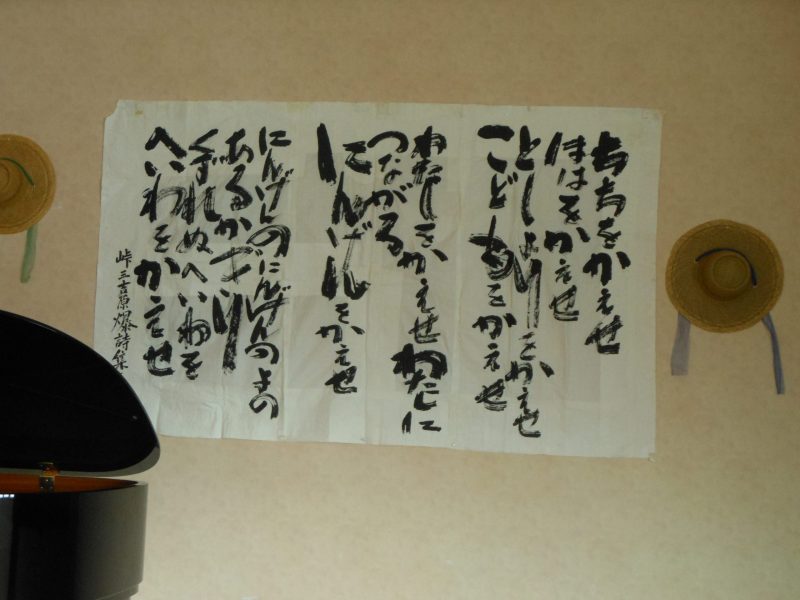 ちちをかえせ
ははをかえせ
としよりをかえせ
こどもをかえせ
わたしをかえせ わたしに
つながる
にんげんをかえせ
にんげんのにんげんのよの
あるかぎり
くずれぬへいわを
へいわをかえせ
峠三吉原爆詩集